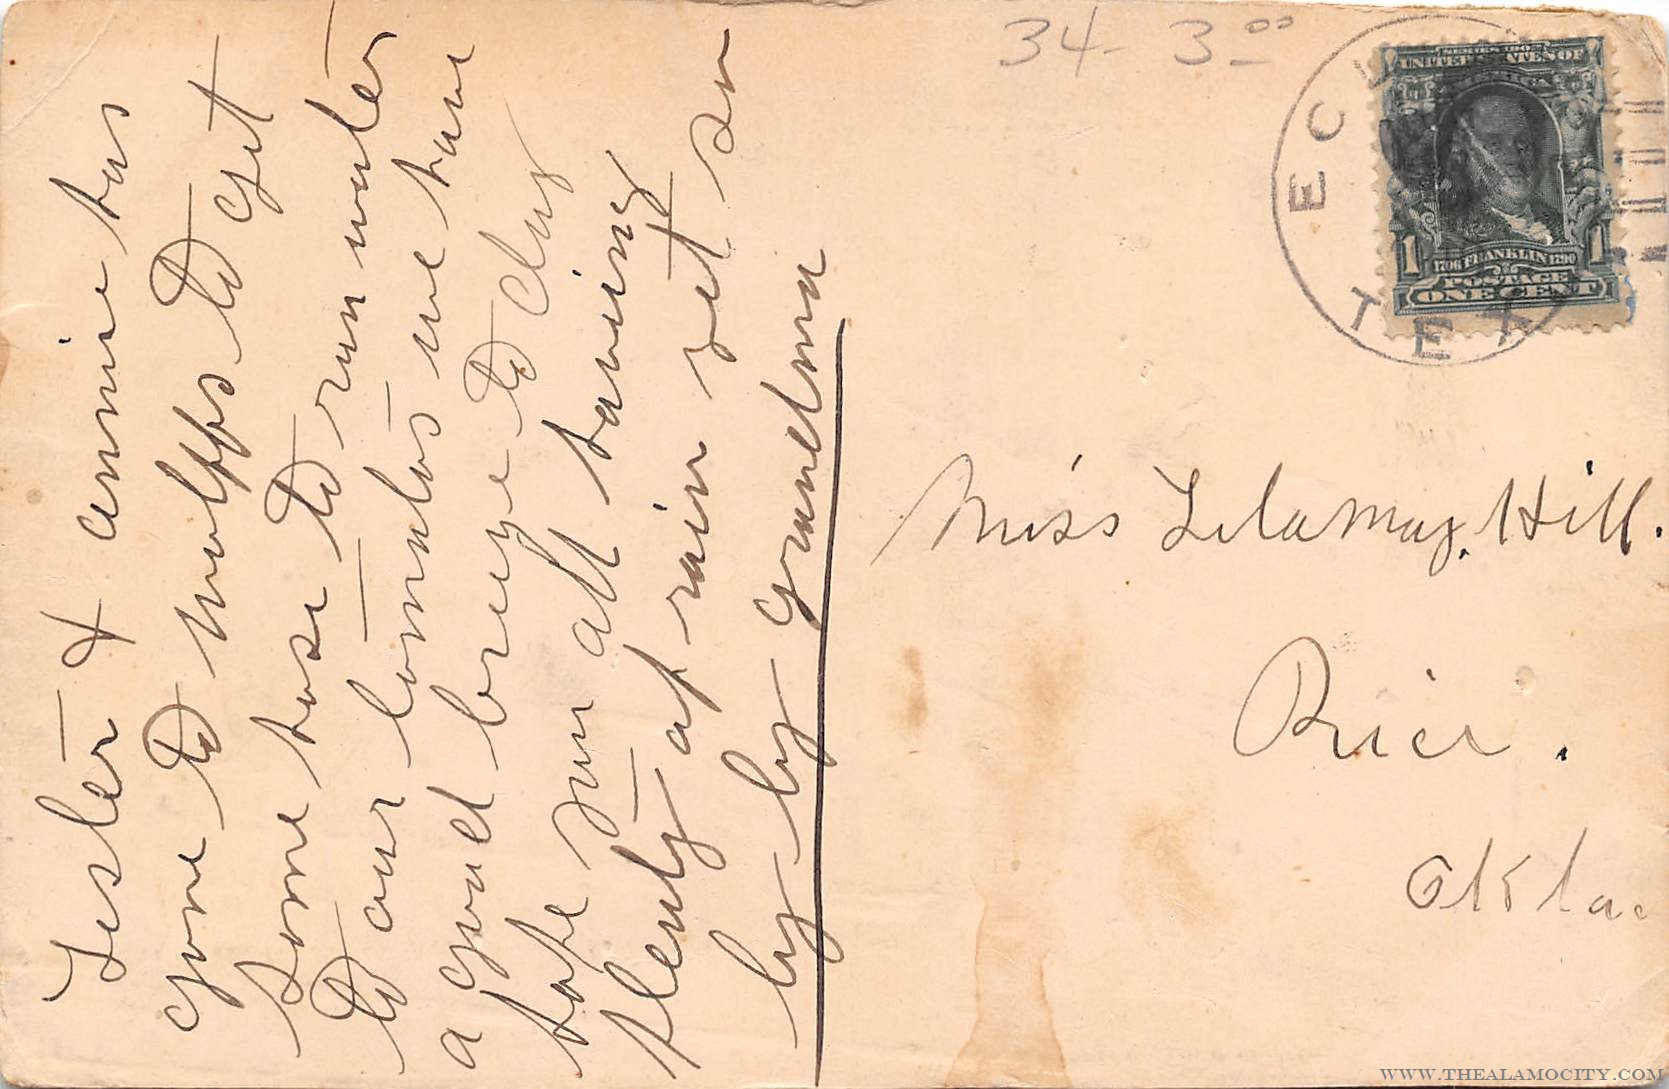 Lester & annie has
gone to Wolffs to get
some hose to run water
to our tomatos we have
a good breeze to day
hope you all having
plenty of rain yet so
by by grandma
34- 3.00
SERIES 1902
UNITED STATES OF
1 1
1706 FRANKLIN 1790
POSTAGE
ONE CENT
TEX
Miss Lela May. Hill.
Rice.
Okla.
WWW.THEALAMOCITY.COM